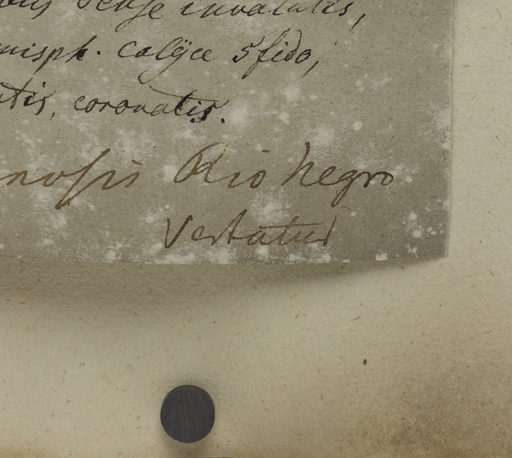 dense involutatis,
misph. calÿce 5fido,
atis, coronatis.
nosis Rio negro
Vertatur